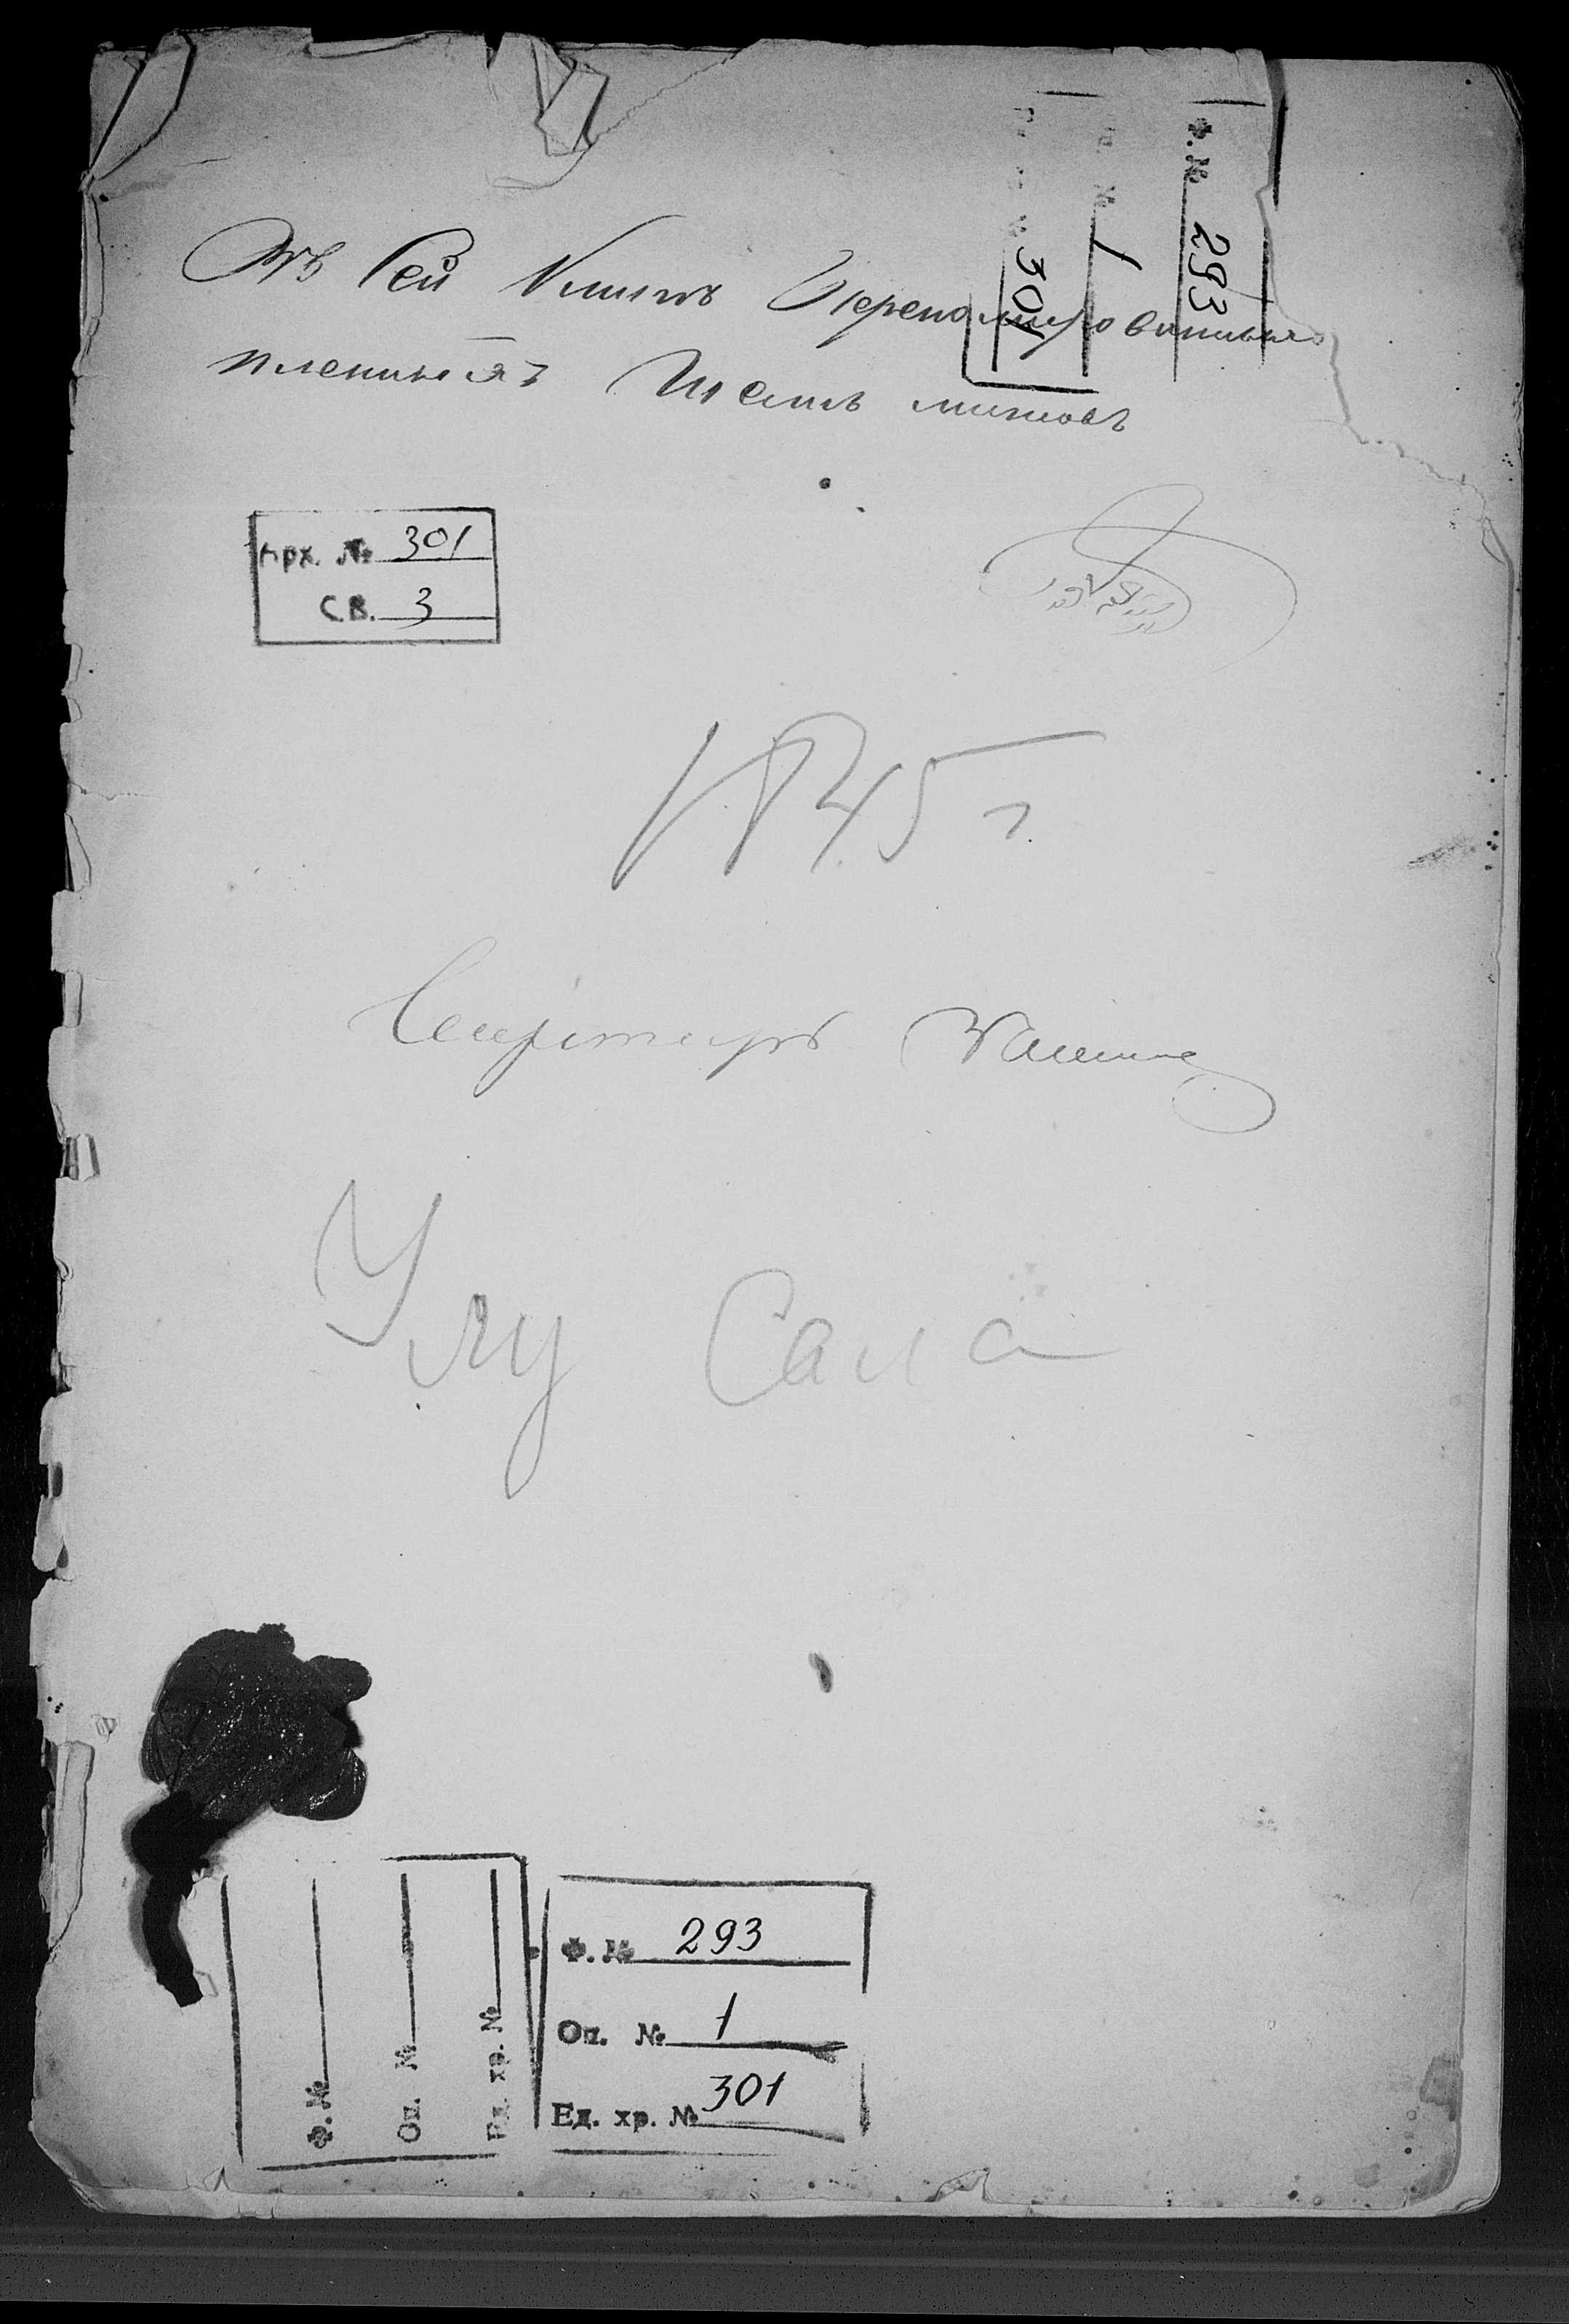 Въ сей Книгѣ Перенумерованныхъ
писанныхъ Шесть листовъ
Ф. № 293
Оп. № 1
301
Арх. № 301
СВ. 3
1845 г.
Секретарь
Улу Сала
Ф. №
Оп. №
Ед. хр. №
Ф. № 293
Оп. № 1
Ед. хр. № 301